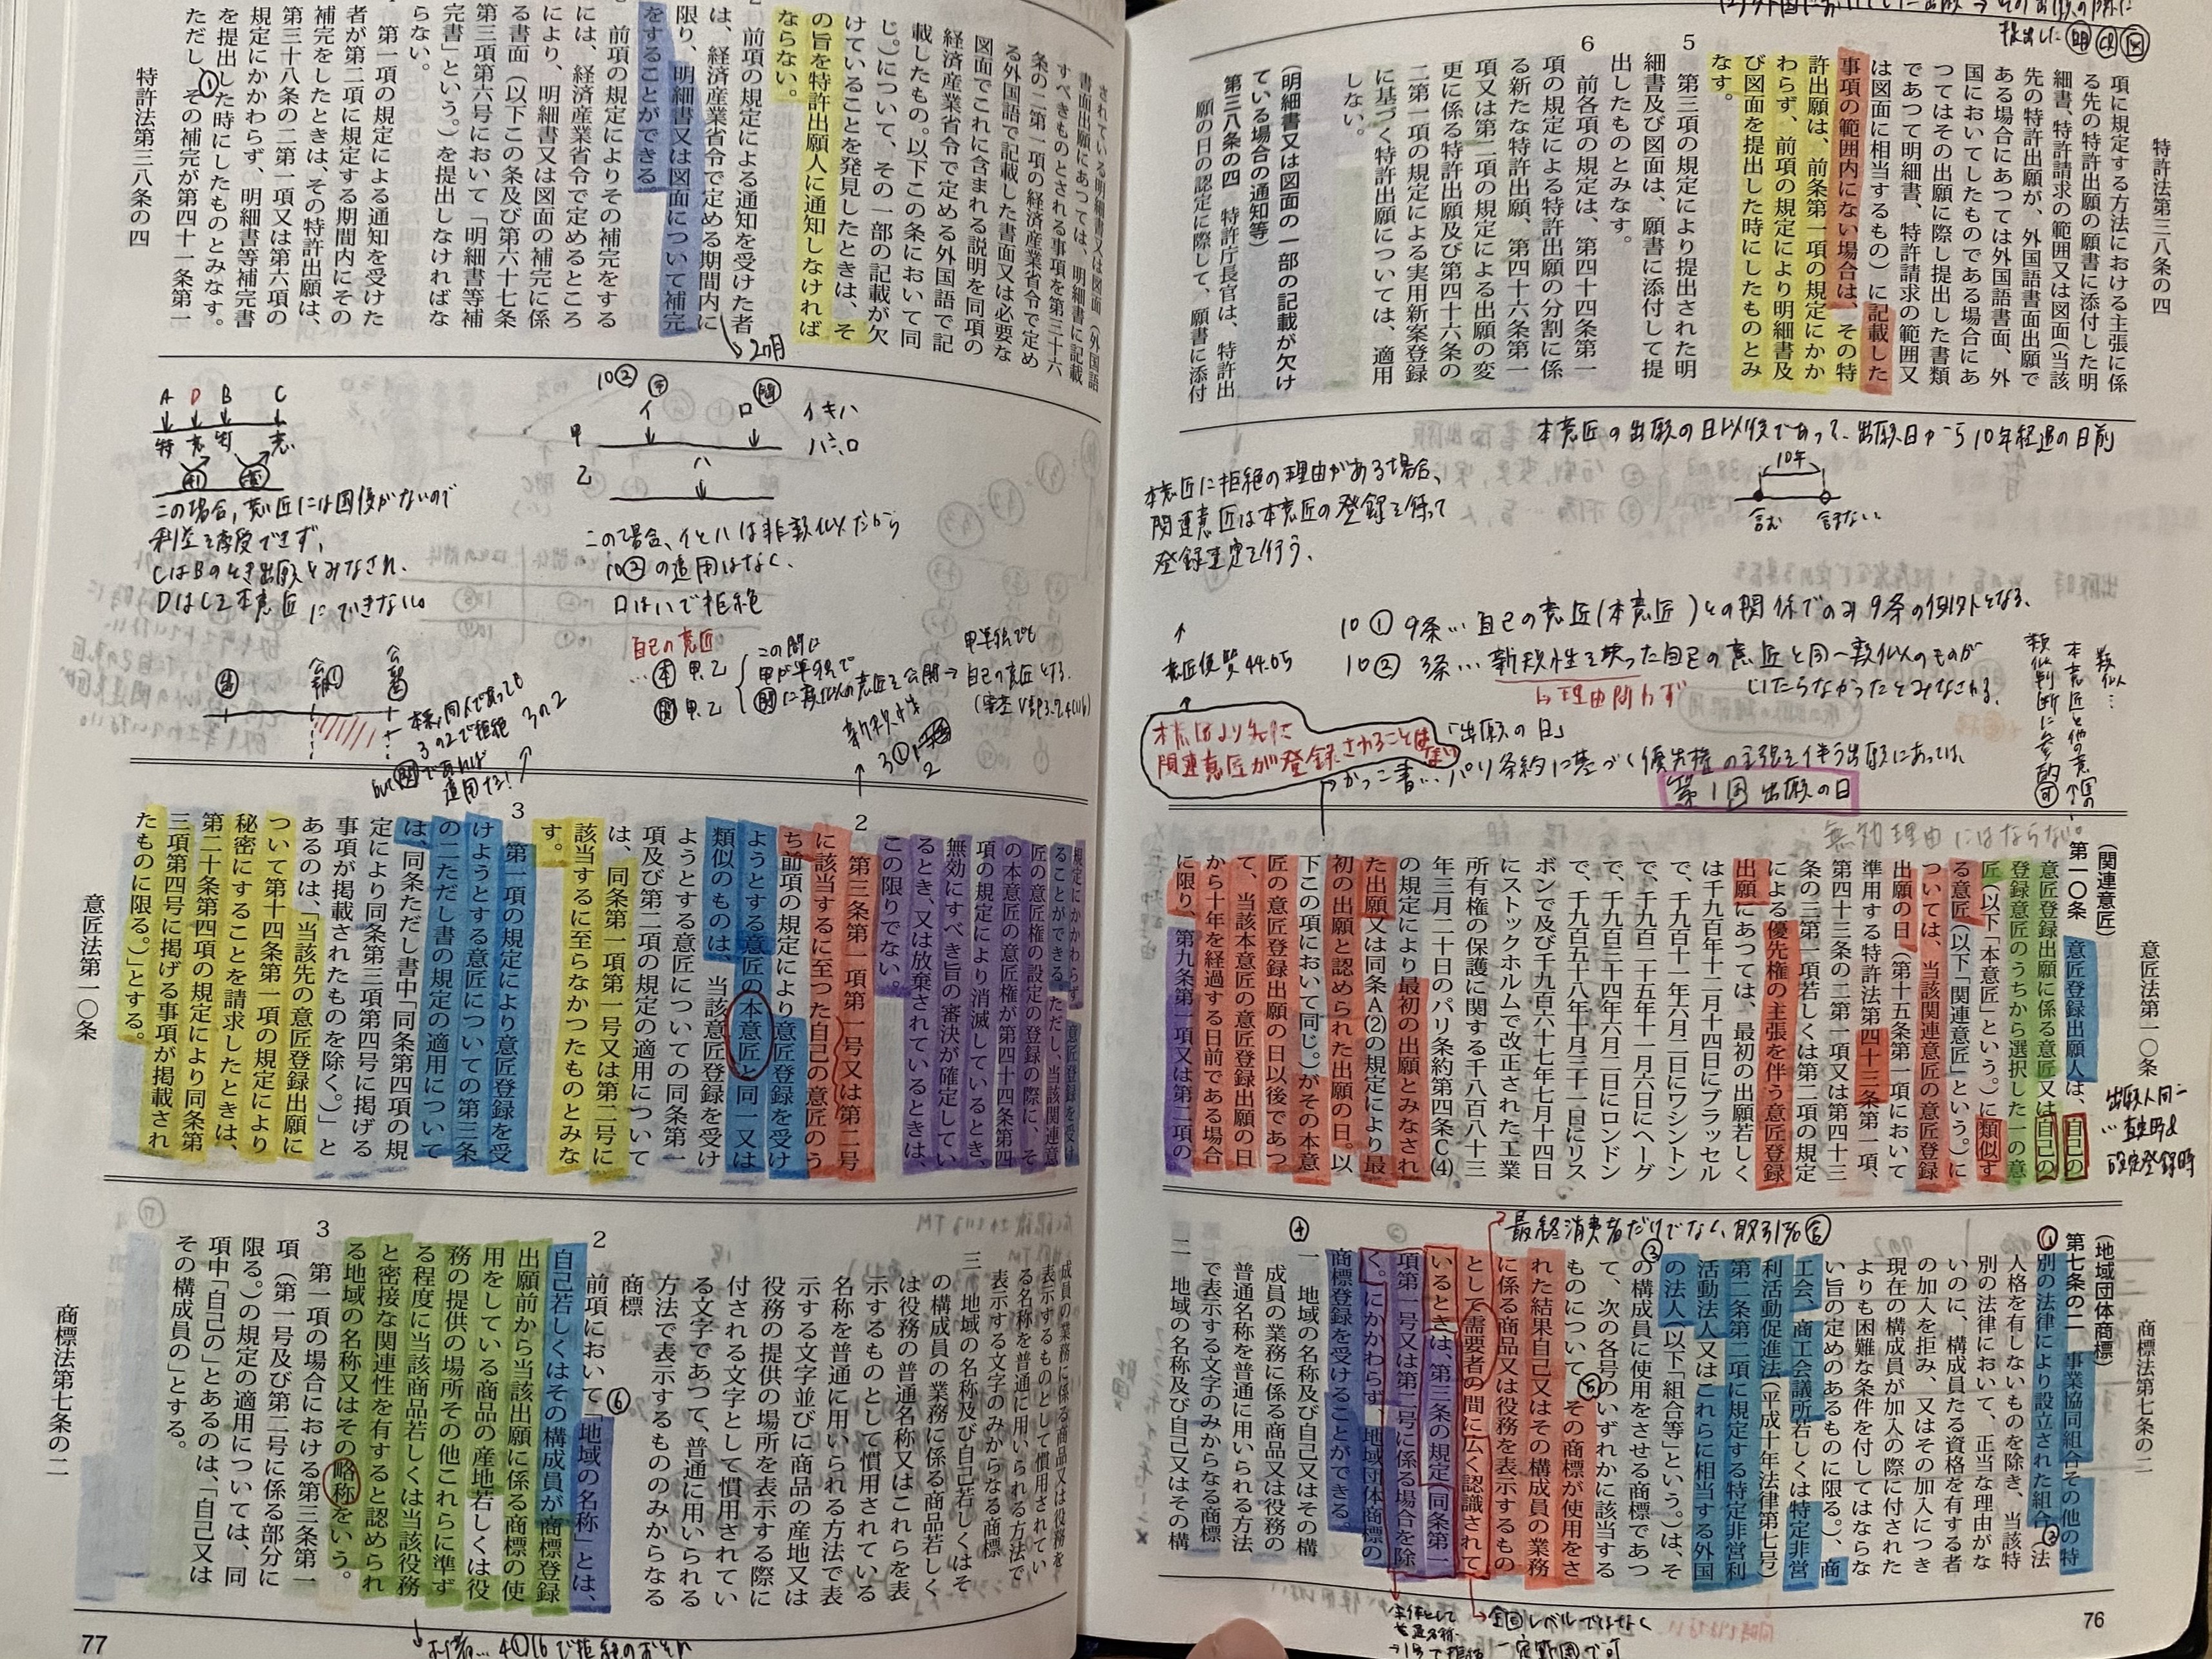 特許法第三八条の四
項に規定する方法における主張に係
る先の特許出願の願書に添付した明
細書、特許請求の範囲又は図面（当該
先の特許出願が、外国語書面出願で
ある場合にあつては外国語書面、外
国においてしたものである場合にあ
つてはその出願に際し提出した書類
であつて明細書、特許請求の範囲又
は図面に相当するもの）に記載した
事項の範囲内にない場合は、その特
許出願は、前条第一項の規定にかか
わらず、前項の規定により明細書及
び図面を提出した時にしたものとみ
なす。
5　第三項の規定により提出された明
細書及び図面は、願書に添付して提
出したものとみなす。
6　前各項の規定は、第四十四条第一
項の規定による特許出願の分割に係
る新たな特許出願、第四十六条第一
項又は第二項の規定による出願の変
更に係る特許出願及び第四十六条の
二第一項の規定による実用新案登録
に基づく特許出願については、適用
しない。
（明細書又は図面の一部の記載が欠け
ている場合の通知等）
第三八条の四　特許庁長官は、特許出
願の日の認定に際して、願書に添付
されている明細書又は図面（外国語
書面出願にあつては、明細書に記載
すべきものとされる事項を第三十六
条の二第一項の経済産業省令で定め
る外国語で記載した書面又は必要な
図面でこれに含まれる説明を同項の
経済産業省令で定める外国語で記
載したもの。以下この条において同
じ。）について、その一部の記載が欠
けていることを発見したときは、そ
の旨を特許出願人に通知しなければ
ならない。
2　前項の規定による通知を受けた者
は、経済産業省令で定める期間内に
限り、明細書又は図面について補完
をすることができる。
前項の規定によりその補完をする
には、経済産業省令で定めるところ
により、明細書又は図面の補完に係
る書面（以下この条及び第六十七条
第三項第六号において「明細書等補
完書」という。）を提出しなければな
らない。
第一項の規定による通知を受けた
者が第二項に規定する期間内にその
補完をしたときは、その特許出願は、
第三十八条の二第一項又は第六項の
規定にかかわらず、明細書等補完書
を提出した時にしたものとみなす。
ただし、その補完が第四十一条第一
特許法第三八条の四
2ヶ月
本意匠の出願の日以後であって、出願日から10年経過の日前
10年
含む
含まない
本意匠に拒絶の理由がある場合、
関連意匠は本意匠の登録を待って
登録査定を行う。
意匠便覧44.05
10①9条…自己の意匠(本意匠)との関係でのみ9条の例外となる。
10②3条…新規性を失った自己の意匠と同一類似のものが
いたらなかったとみなされる。
理由問わず
本意匠より先に
関連意匠が登録されることはない
「出願の日」
かっこ書…パリ条約に基づく優先権の主張を伴う出願にあっては、
第1国出願の日
無効理由にはならない。
出願人同一
…査定時&
設定登録時
10②
イ
ロ
甲
乙
ハ
イキハ
ハ≒ロ
この場合、イとハは非類似だから
10②の適用はなく、
ロはハで拒絶
A D B C
特 意 特 意
この場合、意匠には国優がないので
利益を享受できず、
CはBのとき出願とみなされ、
DはCを本意匠にできない。
自己の意匠
…本 甲、乙
関 甲、乙
この間に
甲が単独で
関に類似の意匠を公開→
甲単独でも
自己の意匠となる。
本来、同人であっても
3の2で拒絶
but関であれば
適用なし!
3の2
意匠法第一〇条
（関連意匠）
第一〇条　意匠登録出願人は、自己の
意匠登録出願に係る意匠又は自己の
登録意匠のうちから選択した一の意
匠（以下「本意匠」という。）に類似す
る意匠（以下「関連意匠」という。）に
ついては、当該関連意匠の意匠登録
出願の日（第十五条第一項において
準用する特許法第四十三条第一項、
第四十三条の二第一項又は第四十三
条の三第一項若しくは第二項の規定
による優先権の主張を伴う意匠登録
出願にあつては、最初の出願若しく
は千九百年十二月十四日にブラッセル
で、千九百十一年六月二日にワシントン
で、千九百二十五年十一月六日にヘーグ
で、千九百三十四年六月二日にロンドン
で、千九百五十八年十月三十一日にリス
ボンで及び千九百六十七年七月十四日
にストックホルムで改正された工業
所有権の保護に関する千八百八十三
年三月二十日のパリ条約第四条C(4)
の規定により最初の出願とみなされ
た出願又は同条A(2)の規定により最
初の出願と認められた出願の日。以
下この項において同じ。）がその本意
匠の意匠登録出願の日以後であつ
て、当該本意匠の意匠登録出願の日
から十年を経過する日前である場合
に限り、第九条第一項又は第二項の
規定にかかわらず、意匠登録を受け
ることができる。ただし、当該関連意
匠の意匠権の設定の登録の際に、そ
の本意匠の意匠権が第四十四条第四
項の規定により消滅しているとき、
無効にすべき旨の審決が確定してい
るとき、又は放棄されているときは、
この限りでない。
2　第三条第一項第一号又は第二号
に該当するに至つた自己の意匠のう
ち前項の規定により意匠登録を受け
ようとする意匠の本意匠と同一又は
類似のものは、当該意匠登録を受け
ようとする意匠についての同条第一
項及び第二項の規定の適用について
は、同条第一項第一号又は第二号に
該当するに至らなかつたものとみな
す。
3　第一項の規定により意匠登録を受
けようとする意匠についての第三条
の二ただし書の規定の適用について
は、同条ただし書中「同条第四項の規
定により同条第三項第四号に掲げる
事項が掲載されたものを除く。）」と
あるのは、「当該先の意匠登録出願に
ついて第十四条第一項の規定により
秘密にすることを請求したときは、
第二十条第四項の規定により同条第
三項第四号に掲げる事項が掲載され
たものに限る。）」とする。
意匠法第一〇条
商標法第七条の二
（地域団体商標）
第七条の二　事業協同組合その他の特
別の法律により設立された組合（法
人格を有しないものを除き、当該特
別の法律において、正当な理由がな
いのに、構成員たる資格を有する者
の加入を拒み、又はその加入につき
現在の構成員が加入の際に付された
よりも困難な条件を付してはならな
い旨の定めのあるものに限る。）、商
工会、商工会議所若しくは特定非営
利活動促進法（平成十年法律第七号）
第二条第二項に規定する特定非営利
活動法人又はこれらに相当する外国
の法人（以下「組合等」という。）は、そ
の構成員に使用をさせる商標であつ
て、次の各号のいずれかに該当する
ものについて、その商標が使用をさ
れた結果自己又はその構成員の業務
に係る商品又は役務を表示するもの
として需要者の間に広く認識されて
いるときは、第三条の規定（同条第一
項第一号又は第二号に係る場合を除
く。）にかかわらず、地域団体商標の
商標登録を受けることができる。
一　地域の名称及び自己又はその構
成員の業務に係る商品又は役務の
普通名称を普通に用いられる方法
で表示する文字のみからなる商標
二　地域の名称及び自己又はその構
成員の業務に係る商品又は役務を
表示するものとして慣用されてい
る名称を普通に用いられる方法で
表示する文字のみからなる商標
三　地域の名称及び自己若しくはそ
の構成員の業務に係る商品若しく
は役務の普通名称又はこれらを表
示するものとして慣用されている
名称を普通に用いられる方法で表
示する文字並びに商品の産地又は
役務の提供の場所を表示する際に
付される文字として慣用されてい
る文字であつて、普通に用いられる
方法で表示するもののみからなる
商標
2　前項において「地域の名称」とは、
自己若しくはその構成員が商標登録
出願前から当該出願に係る商標の使
用をしている商品の産地若しくは役
務の提供の場所その他これらに準ず
る程度に当該商品若しくは当該役務
と密接な関連性を有すると認められ
る地域の名称又はその略称をいう。
3　第一項の場合における第三条第一
項（第一号及び第二号に係る部分に
限る。）の規定の適用については、同
項中「自己の」とあるのは、「自己又は
その構成員の」とする。
商標法第七条の二
最終消費者だけでなく、取引者含
全国レベルではなく
一定範囲で可
76
77